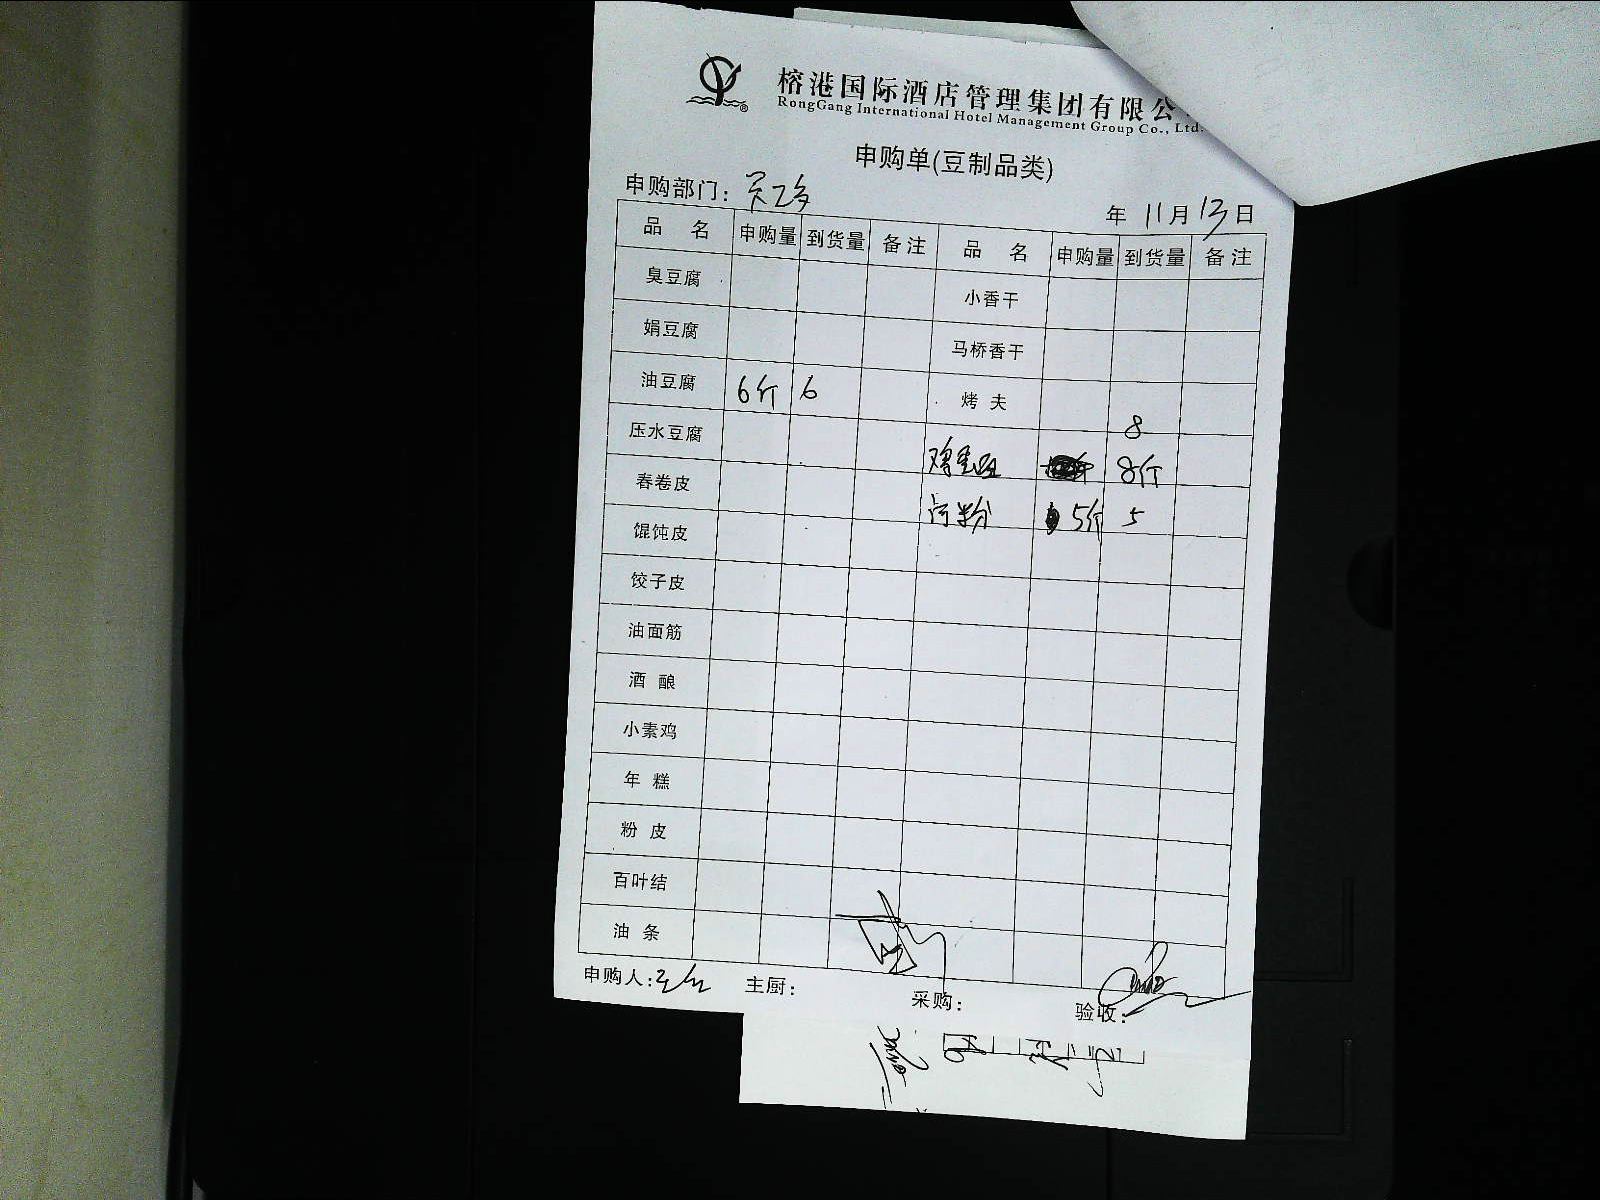 榕港国际酒店管理集团有限公
RongGang International Hotel Management Group Co., Ltd.
申购单(豆制品类)
申购部门: 员工
年 11月13日
品 名 申购量 到货量 备注 品 名 申购量 到货量 备注
臭豆腐 小香干
娟豆腐 马桥香干
油豆腐 6斤 6 烤夫
8
压水豆腐 8斤
春卷皮 河粉 5斤 5
馄饨皮
饺子皮
油面筋
酒酿
小素鸡
年糕
粉皮
百叶结
油条
申购人: 主厨: 采购: 验收: